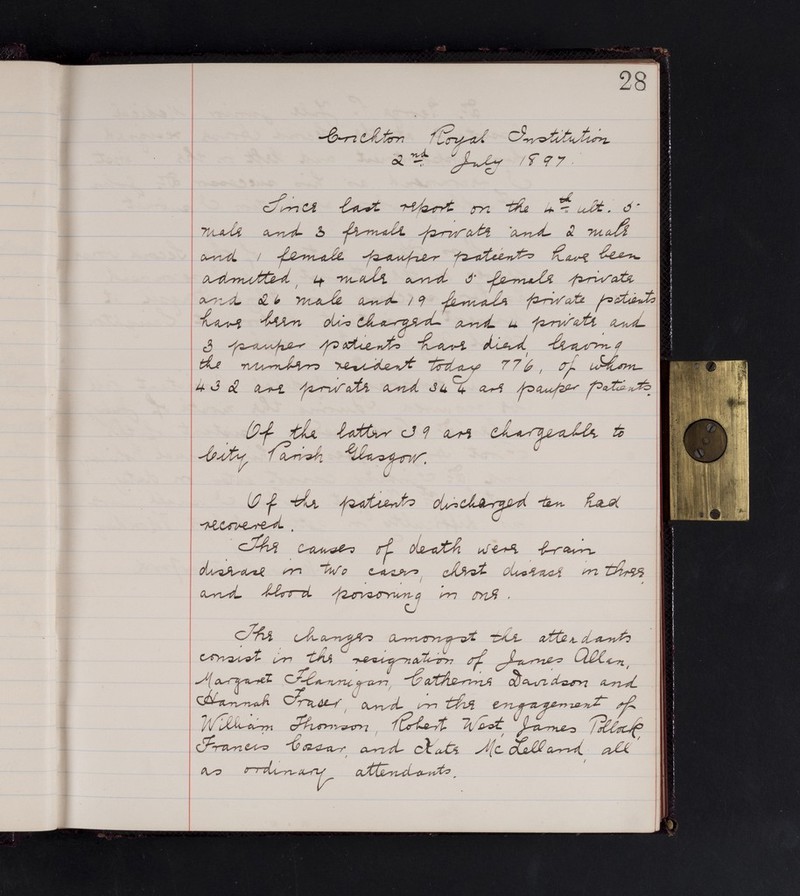 28
Crichton Royal Institution
2nd July 1897.
Since last report on the 4th ult. 5
male and 3 female private and 2 male
and 1 female pauper patients have been
admitted, 4 male and 5 female private
and 26 male and 19 female private patients
have been discharged and 4 private and
3 pauper patients have died, leaving
the numbers resident today 776, of whom
432 are private and 344 are pauper patients.
Of the latter 39 are chargeable to
City Parish Glasgow.
Of the patients discharged ten had
recovered.
The causes of death were brain
disease in two cases, chest disease in three,
and blood poisoning in one.
The changes amongst the attendants
consist in the resignation of James Allan,
Margaret Flannigan, Catherine Davidson and
Hannah Fraser, and in the engagement of
William Thomson, Robert West, James Pollock,
Francis Cossar, and Kate McLelland, all
as ordinary attendants.